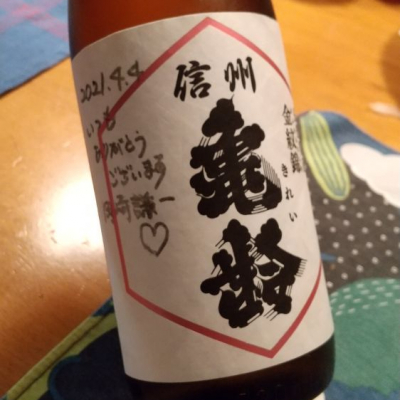 信州
亀齢
金紋錦
きれい
2021.4.4
いつも
ありがとう
ございます
岡崎謙一
♡